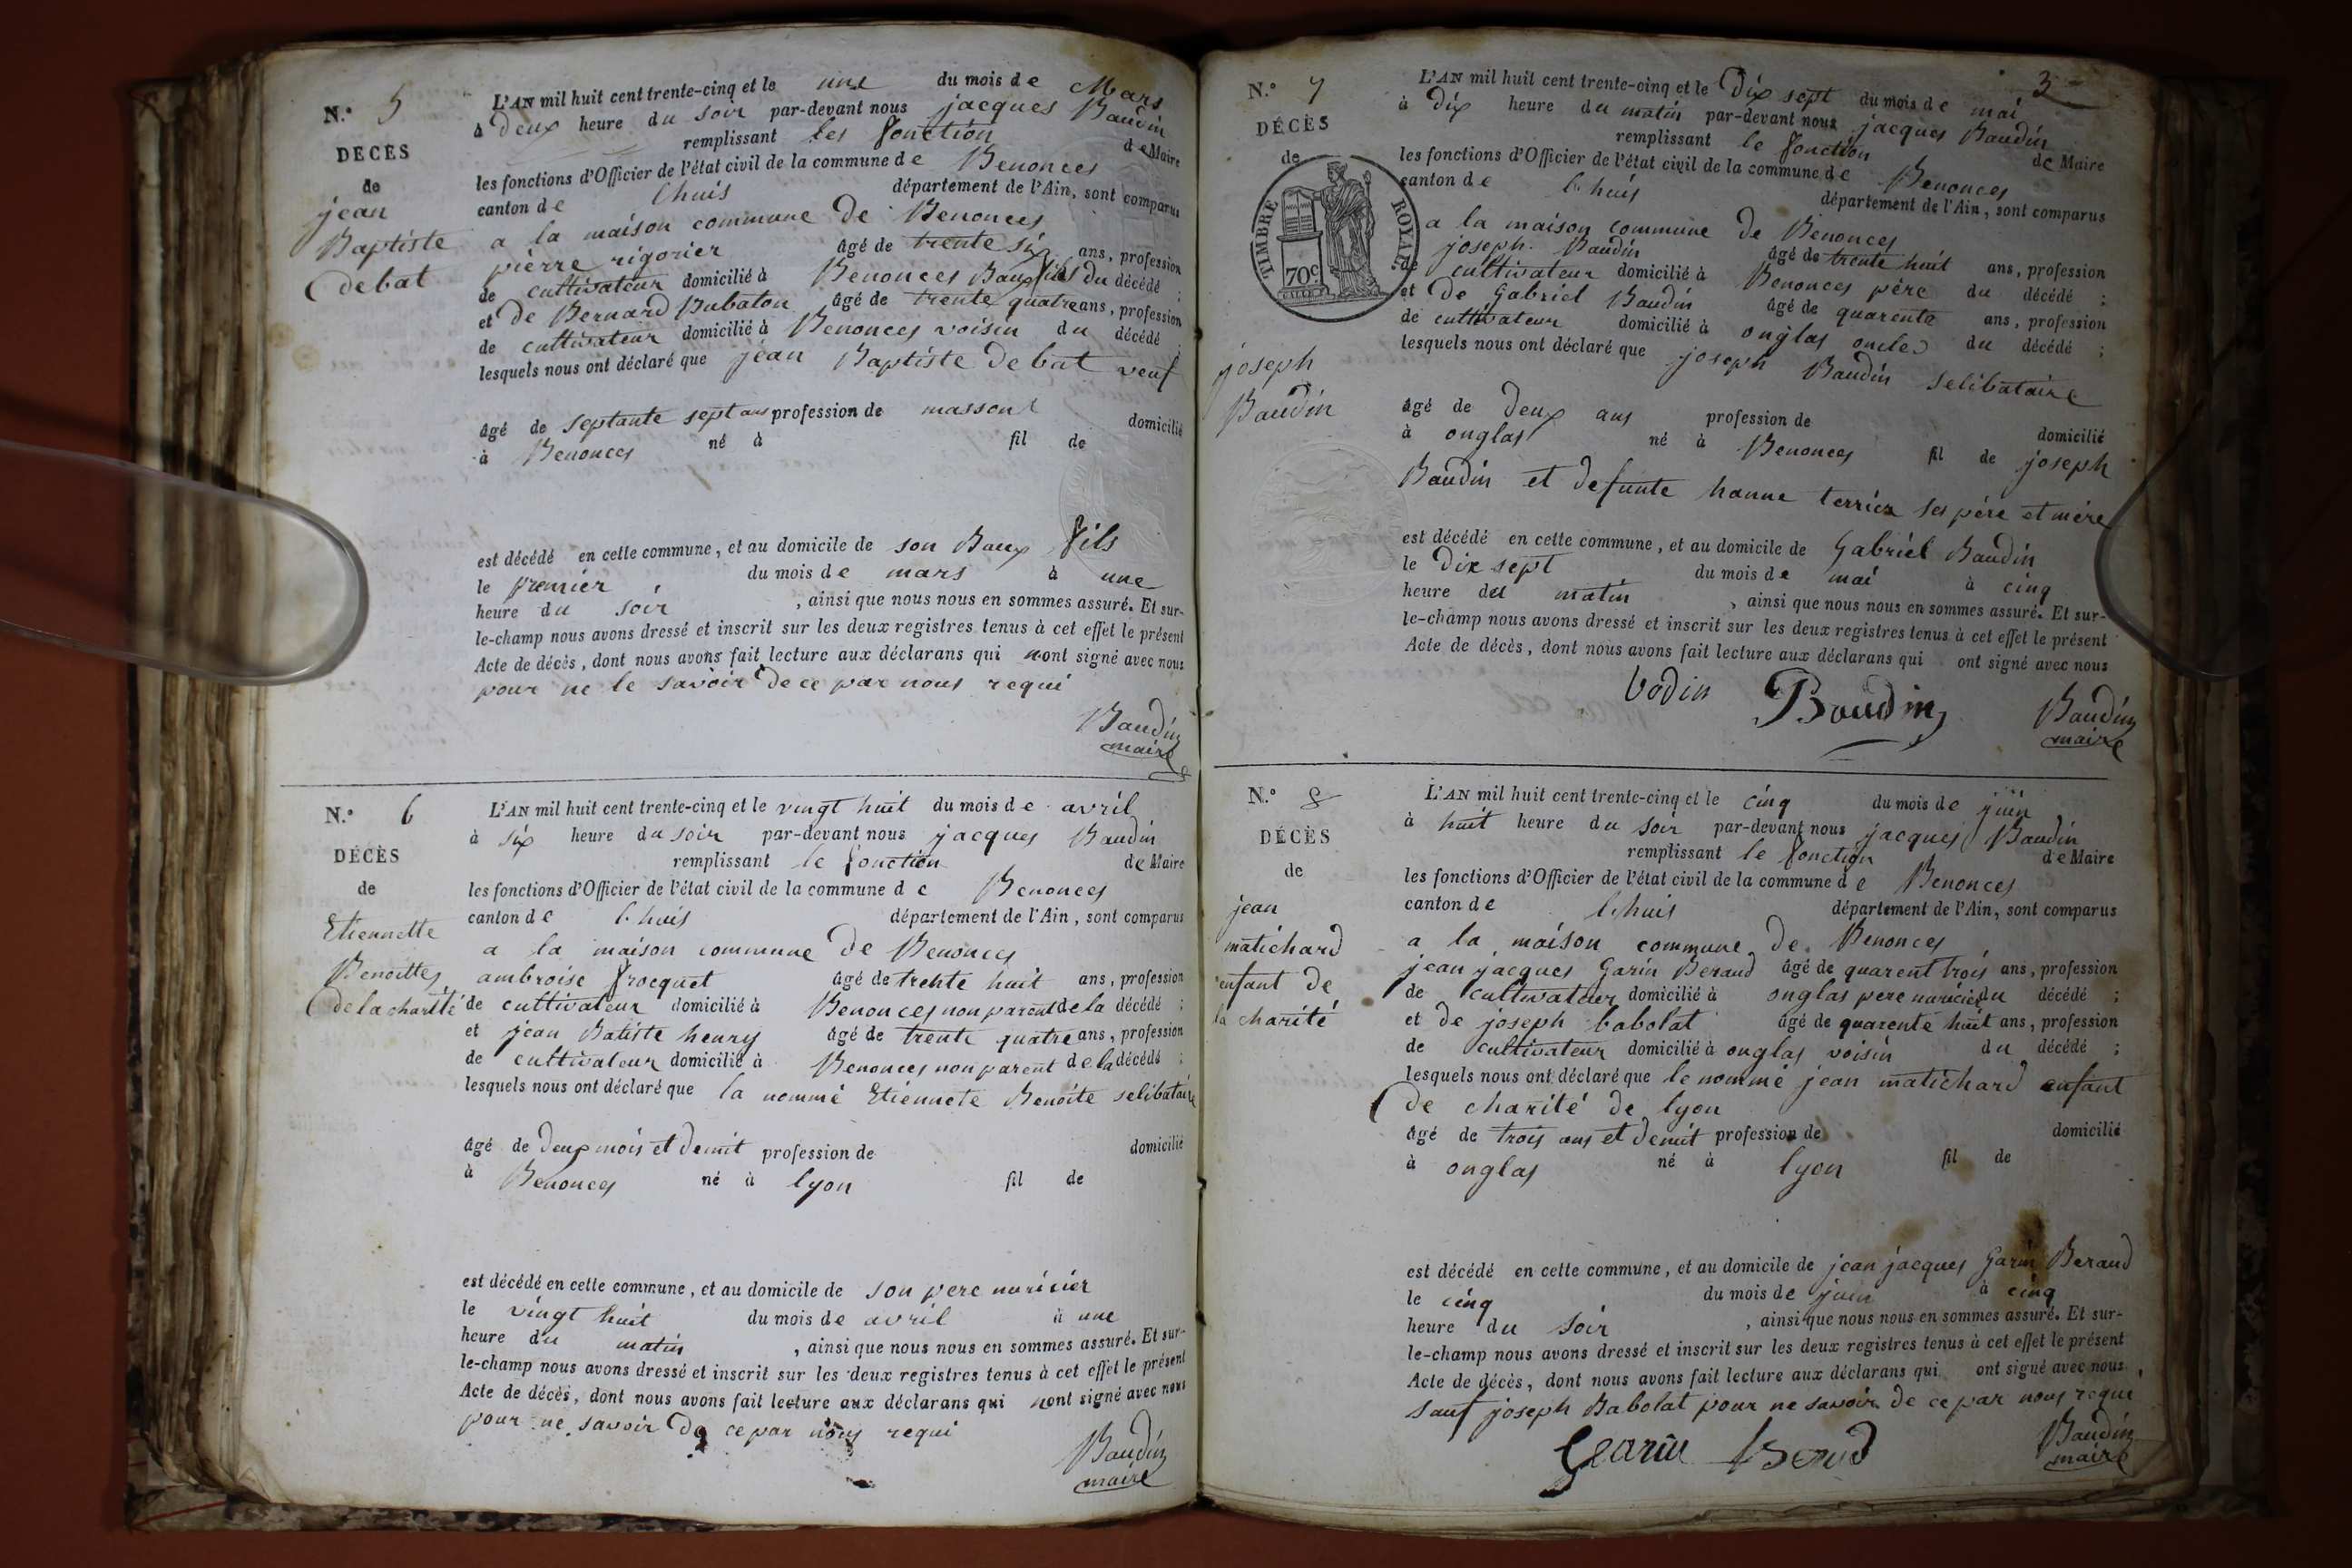 N.° 5
DÉCÈS
de
jean
Baptiste
debat
L'AN mil huit cent trente-cinq et le une du mois de Mars
à deux heure du soir par-devant nous jacques Baudin
remplissant les fonction de Maire
les fonctions d'Officier de l'état civil de la commune de Benonces
canton de lhuis département de l'Ain, sont comparus
a la maison commune de Benonces
pierre rigorier âgé de trente six ans, profession
de cultivateur domicilié à Benonces Baux fils du décédé ;
et de Bernard Bubaton âgé de trente quatre ans, profession
de cultivateur domicilié à Benonces voisin du décédé ;
lesquels nous ont déclaré que jean Baptiste debat veuf
âgé de septante sept ans profession de masson domicilié
à Benonces né à fil de
est décédé en cette commune, et au domicile de son Baux fils
le premier du mois de mars à une
heure du soir , ainsi que nous nous en sommes assuré. Et sur-
le-champ nous avons dressé et inscrit sur les deux registres tenus à cet effet le présent
Acte de décès, dont nous avons fait lecture aux déclarans qui nont signé avec nous
pour ne le savoir de ce par nous requi
Baudin
maire
N.° 6
DÉCÈS
de
Etiennette
Benoittes
de la charité
L'AN mil huit cent trente-cinq et le vingt huit du mois de avril
à six heure du soir par-devant nous jacques Baudin
remplissant le fonction de Maire
les fonctions d'Officier de l'état civil de la commune de Benonces
canton de lhuis département de l'Ain, sont comparus
a la maison commune de Benonces
ambroise frocquet âgé de trente huit ans, profession
de cultivateur domicilié à Benonces non parent de la décédé ;
et jean Batiste henry âgé de trente quatre ans, profession
de cultivateur domicilié à Benonces non parent de la décédé ;
lesquels nous ont déclaré que la nommé Etiennete Benoite selibataire
âgé de deux mois et demit profession de domicilié
à Benonces né à lyon fil de
est décédé en cette commune, et au domicile de son pere nuricier
le vingt huit du mois de avril à une
heure du matin , ainsi que nous nous en sommes assuré. Et sur-
le-champ nous avons dressé et inscrit sur les deux registres tenus à cet effet le présent
Acte de décès, dont nous avons fait lecture aux déclarans qui nont signé avec nous
pour ne savoir de ce par nous requi
Baudin
maire
3
N.° 7
DÉCÈS
de
TIMBRE ROYAL
70c
joseph
Baudin
L'AN mil huit cent trente-cinq et le dix sept du mois de mai
à dix heure du matin par-devant nous jacques Baudin
remplissant le fonction de Maire
les fonctions d'Officier de l'état civil de la commune de Benonces
canton de lhuis département de l'Ain, sont comparus
a la maison commune de Benonces
joseph Baudin âgé de trente huit ans, profession
de cultivateur domicilié à Benonces père du décédé ;
et de Gabriel Baudin âgé de quarente ans, profession
de cultivateur domicilié à onglas oncle du décédé ;
lesquels nous ont déclaré que joseph Baudin selibataire
âgé de deux ans profession de domicilié
à onglas né à Benonces fil de joseph
Baudin et defunte hanne terrier ses père et mère
est décédé en cette commune, et au domicile de Gabriel Baudin
le dix sept du mois de mai à cinq
heure du matin , ainsi que nous nous en sommes assuré. Et sur-
le-champ nous avons dressé et inscrit sur les deux registres tenus à cet effet le présent
Acte de décès, dont nous avons fait lecture aux déclarans qui ont signé avec nous
bodin Baudin Baudin
maire
N.° 8
DÉCÈS
de
jean
matichard
enfant de
la charité
L'AN mil huit cent trente-cinq et le cinq du mois de juin
à huit heure du soir par-devant nous jacques Baudin
remplissant le fonction de Maire
les fonctions d'Officier de l'état civil de la commune de Benonces
canton de lhuis département de l'Ain, sont comparus
a la maison commune de Benonces
jean jacques Garin Beraud âgé de quarent trois ans, profession
de cultivateur domicilié à onglas pere nuricier du décédé ;
et de joseph babolat âgé de quarente huit ans, profession
de cultivateur domicilié à onglas voisin du décédé ;
lesquels nous ont déclaré que le nommé jean matichard enfant
de charité de lyon
âgé de trois ans et demit profession de domicilié
à onglas né à lyon fil de
est décédé en cette commune, et au domicile de jean jacques Garin Beraud
le cinq du mois de juin à cinq
heure du soir , ainsi que nous nous en sommes assuré. Et sur-
le-champ nous avons dressé et inscrit sur les deux registres tenus à cet effet le présent
Acte de décès, dont nous avons fait lecture aux déclarans qui ont signé avec nous
sauf joseph Babolat pour ne savoir de ce par nous requi
Garin Berud Baudin
maire